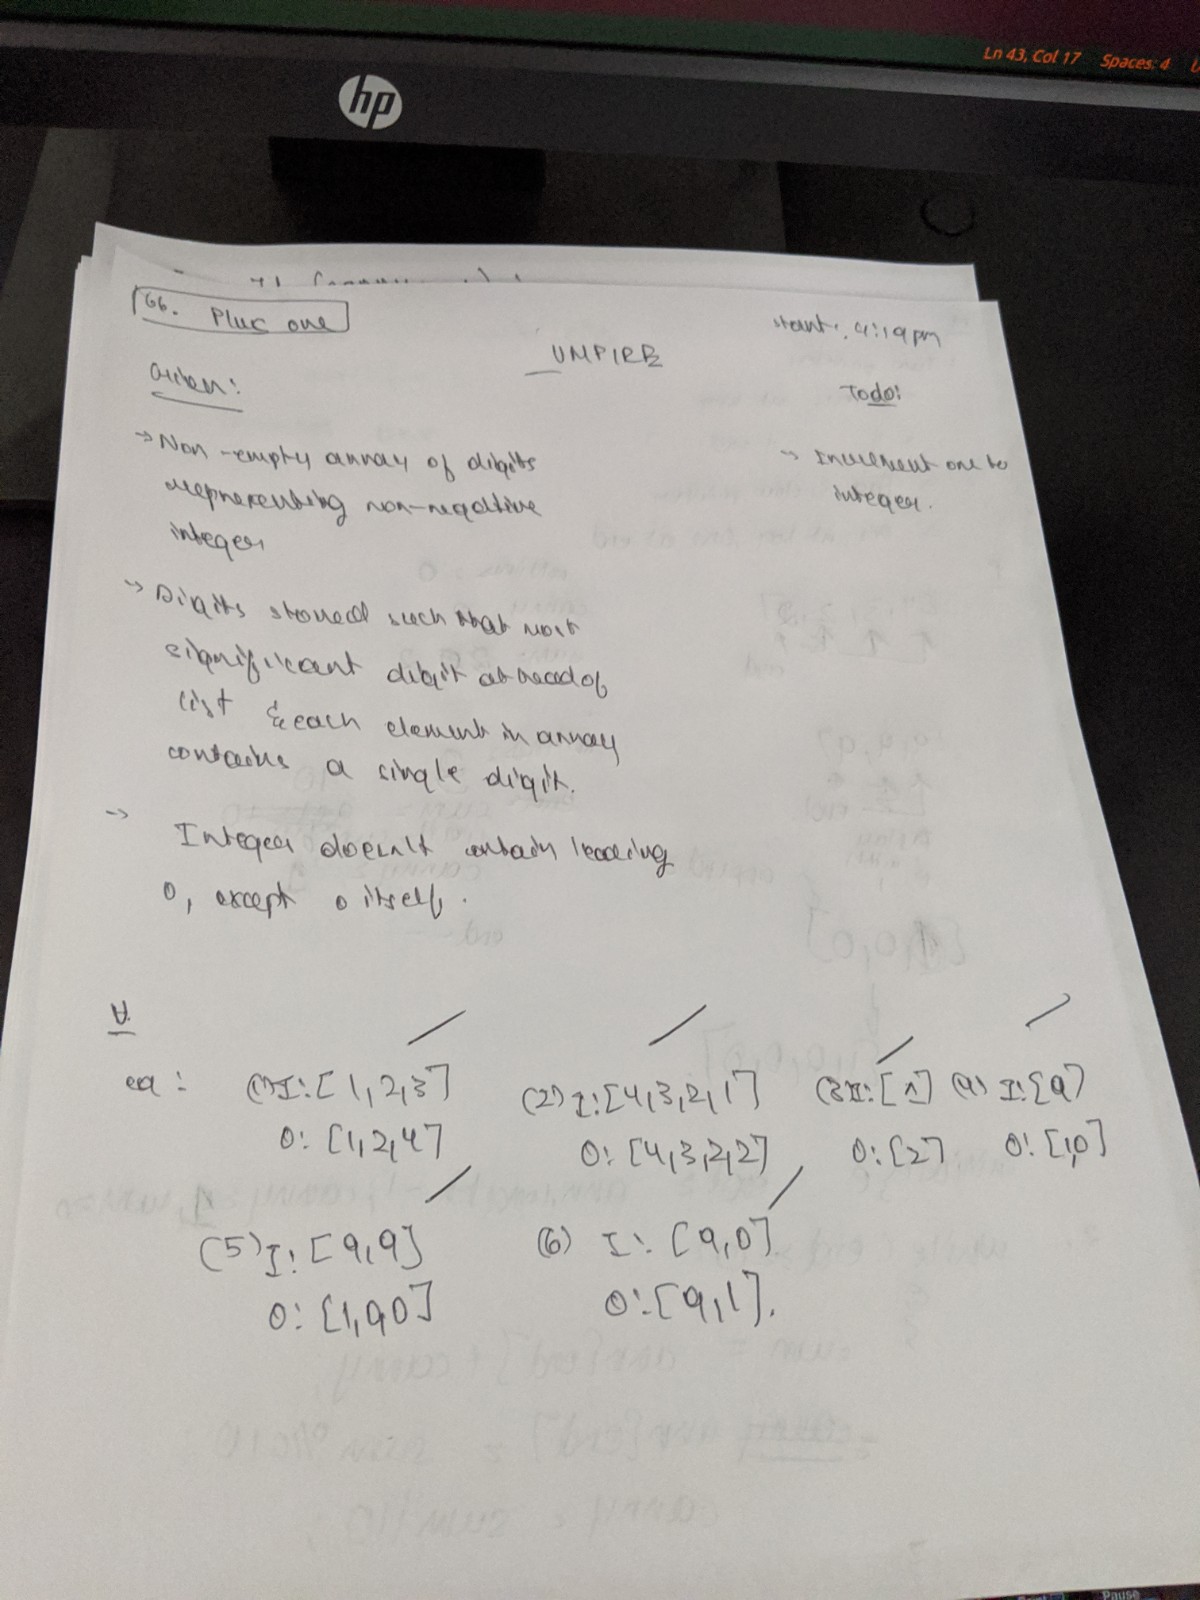 Ln 43, Col 17 Spaces: 4
hp
66. Plus one
start: 4:19pm
UMPIRE
Given:
Todo:
→ Non-empty array of digits
representing non-negative
integer
→ Increment one to
integer.
→ Digits stored such that most
significant digit at head of
list & each element in array
contains a single digit.
→ Integer doesn't contain leading
0, except 0 itself.
U.
eg: (1) I: [1,2,3] (2) I: [4,3,2,1] (3) I: [1] (4) I: [9]
O: [1,2,4] O: [4,3,2,2] O: [2] O: [1,0]
(5) I: [9,9] (6) I: [9,0]
O: [1,0,0] O: [9,1].
Pause